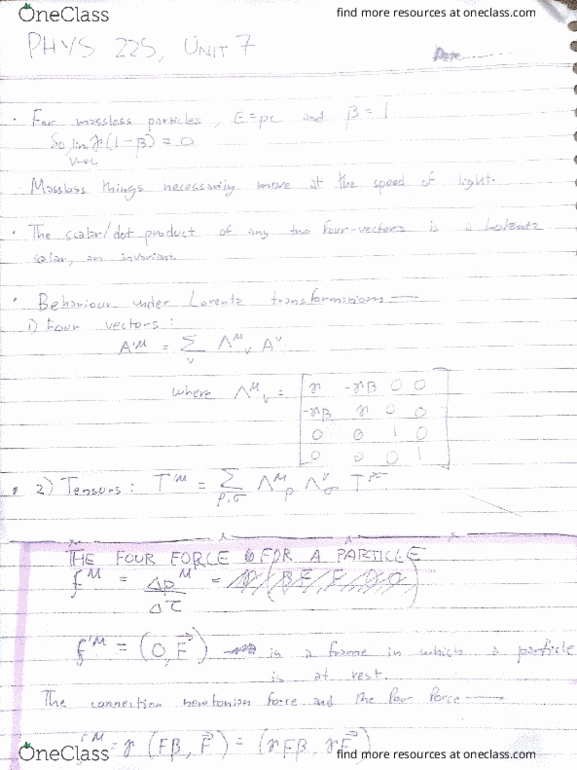 OneClass find more resources at oneclass.com
PHYS 225, UNIT 7
Date
· For massless particles, E=pc and β=1
So lim γ(1-β) = 0
v→c
Massless things necessarily move at the speed of light.
· The scalar/dot product of any two four-vectors is a Lorentz
scalar, an invariant.
· Behaviour under Lorentz transformations —
1) Four vectors:
A'ᴹ = Σ Λᴹᵥ Aᵛ
ᵥ
where Λᴹᵥ = [γ -γβ 0 0
-γβ γ 0 0
0 0 1 0
0 0 0 1]
· 2) Tensors: T'ᴹ = Σ Λᴹρ Λσ Tρσ
ρ,σ
THE FOUR FORCE FOR A PARTICLE
fᴹ = Δpᴹ =
Δτ
f'ᴹ = (0, F⃗) is a frame in which a particle
is at rest.
The connection newtonian force and the four force —
fᴹ = γ (Fβ, F⃗) = (γFβ, γF⃗)
OneClass find more resources at oneclass.com